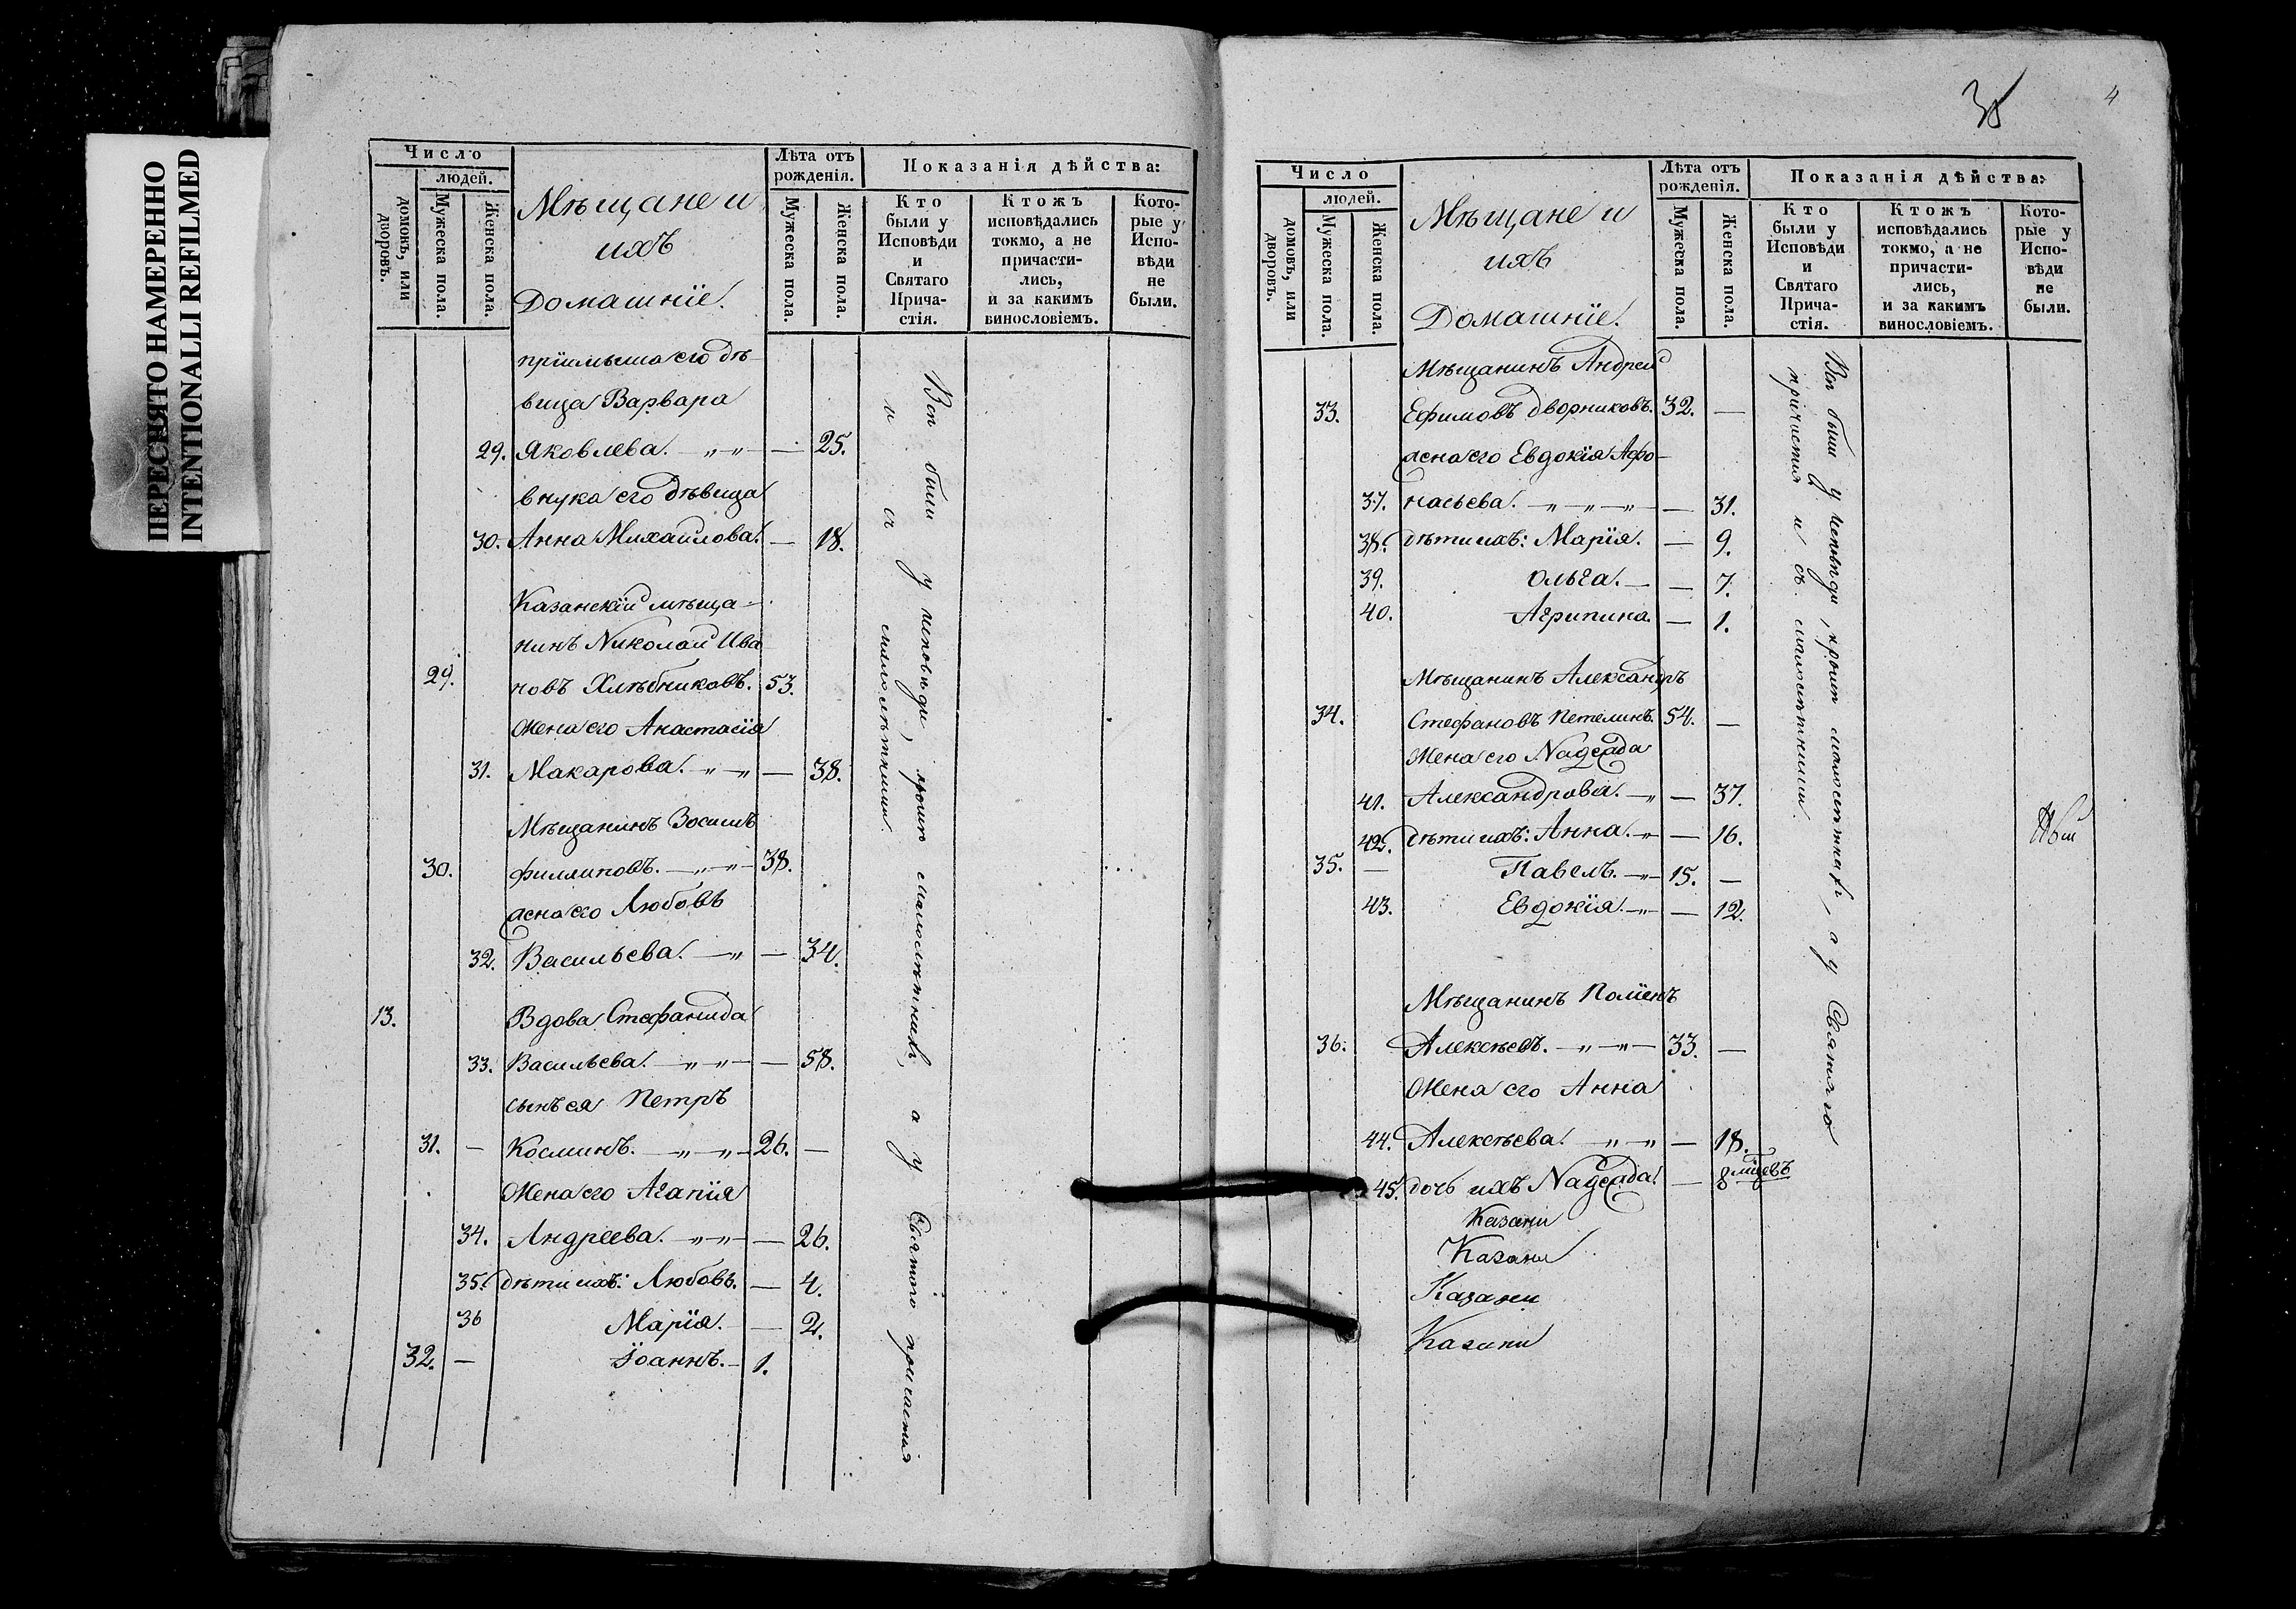 ПЕРЕСНЯТО НАМЕРЕННО
INTENTIONALLI REFILMED
Число
людей.
домовъ, или дворовъ.
Мужеска пола.
Женска пола.
Мѣщане и
ихъ
Домашніе.
Лѣта отъ
рожденія.
Мужеска пола.
Женска пола.
Показанія дѣйства:
Кто
были у
Исповѣди
и
Святаго
Прича-
стія.
Ктожъ
исповѣдались
токмо, а не
причасти-
лись,
и за какимъ
винословіемъ.
Кото-
рые у
Испо-
вѣди
не
были.
пріемыша его дѣ-
вица Варвара
29. Яковлева. — 25.
внука его дѣвица
30. Анна Михайлова. — 18.
Казанскій мѣща-
нинъ Николай Ива
29. новъ Хлѣбниковъ. 53.
Жена его Анастасія
31. Макарова. — 38.
Мѣщанинъ Зосимъ
30. Филиповъ. — 38.
жена его Любовь
32. Васильева. — 34.
13. Вдова Стефанида
33. Васильева. — 58.
сынъ ея Петръ
31. — Косминъ. — 26. —
Жена его Агапія
34. Андреева. — 26.
35. дѣти ихъ: Любовь. — 4.
36 Марія. — 2.
32. — Іоаннъ. — 1.
Всѣ были у исповѣди, кромѣ малолѣтнихъ, а у Святаго причастія
и съ малолѣтними.
38
4
Число
людей.
домовъ, или дворовъ.
Мужеска пола.
Женска пола.
Мѣщане и
ихъ
Домашніе.
Лѣта отъ
рожденія.
Мужеска пола.
Женска пола.
Показанія дѣйства:
Кто
были у
Исповѣди
и
Святаго
Прича-
стія.
Ктожъ
исповѣдались
токмо, а не
причасти-
лись,
и за какимъ
винословіемъ.
Кото-
рые у
Испо-
вѣди
не
были.
Мѣщанинъ Андрей
33. Ефимовъ Дворниковъ. 32. —
жена его Евдокія Афо-
37. насьева. — 31.
38. дѣти ихъ: Марія. — 9.
39. Ольга. — 7.
40. Агрипина. — 1.
Мѣщанинъ Александръ
34. Стефановъ Петелинъ. 54. —
Жена его Надежда
41. Александрова. — 37.
42. дѣти ихъ: Анна. — 16.
35. — Павелъ. — 15. —
43. Евдокія. — 12.
Мѣщанинъ Поліенъ
36. Алексѣевъ. — 33. —
Жена его Анна
44. Алексѣева. — 18.
45. дочь ихъ Надежда. — 8 мѣцевъ
Казани
Казани
Казани
Казани
Всѣ были у исповѣди, кромѣ малолѣтнихъ, а у Святаго
причастія и съ малолѣтними.